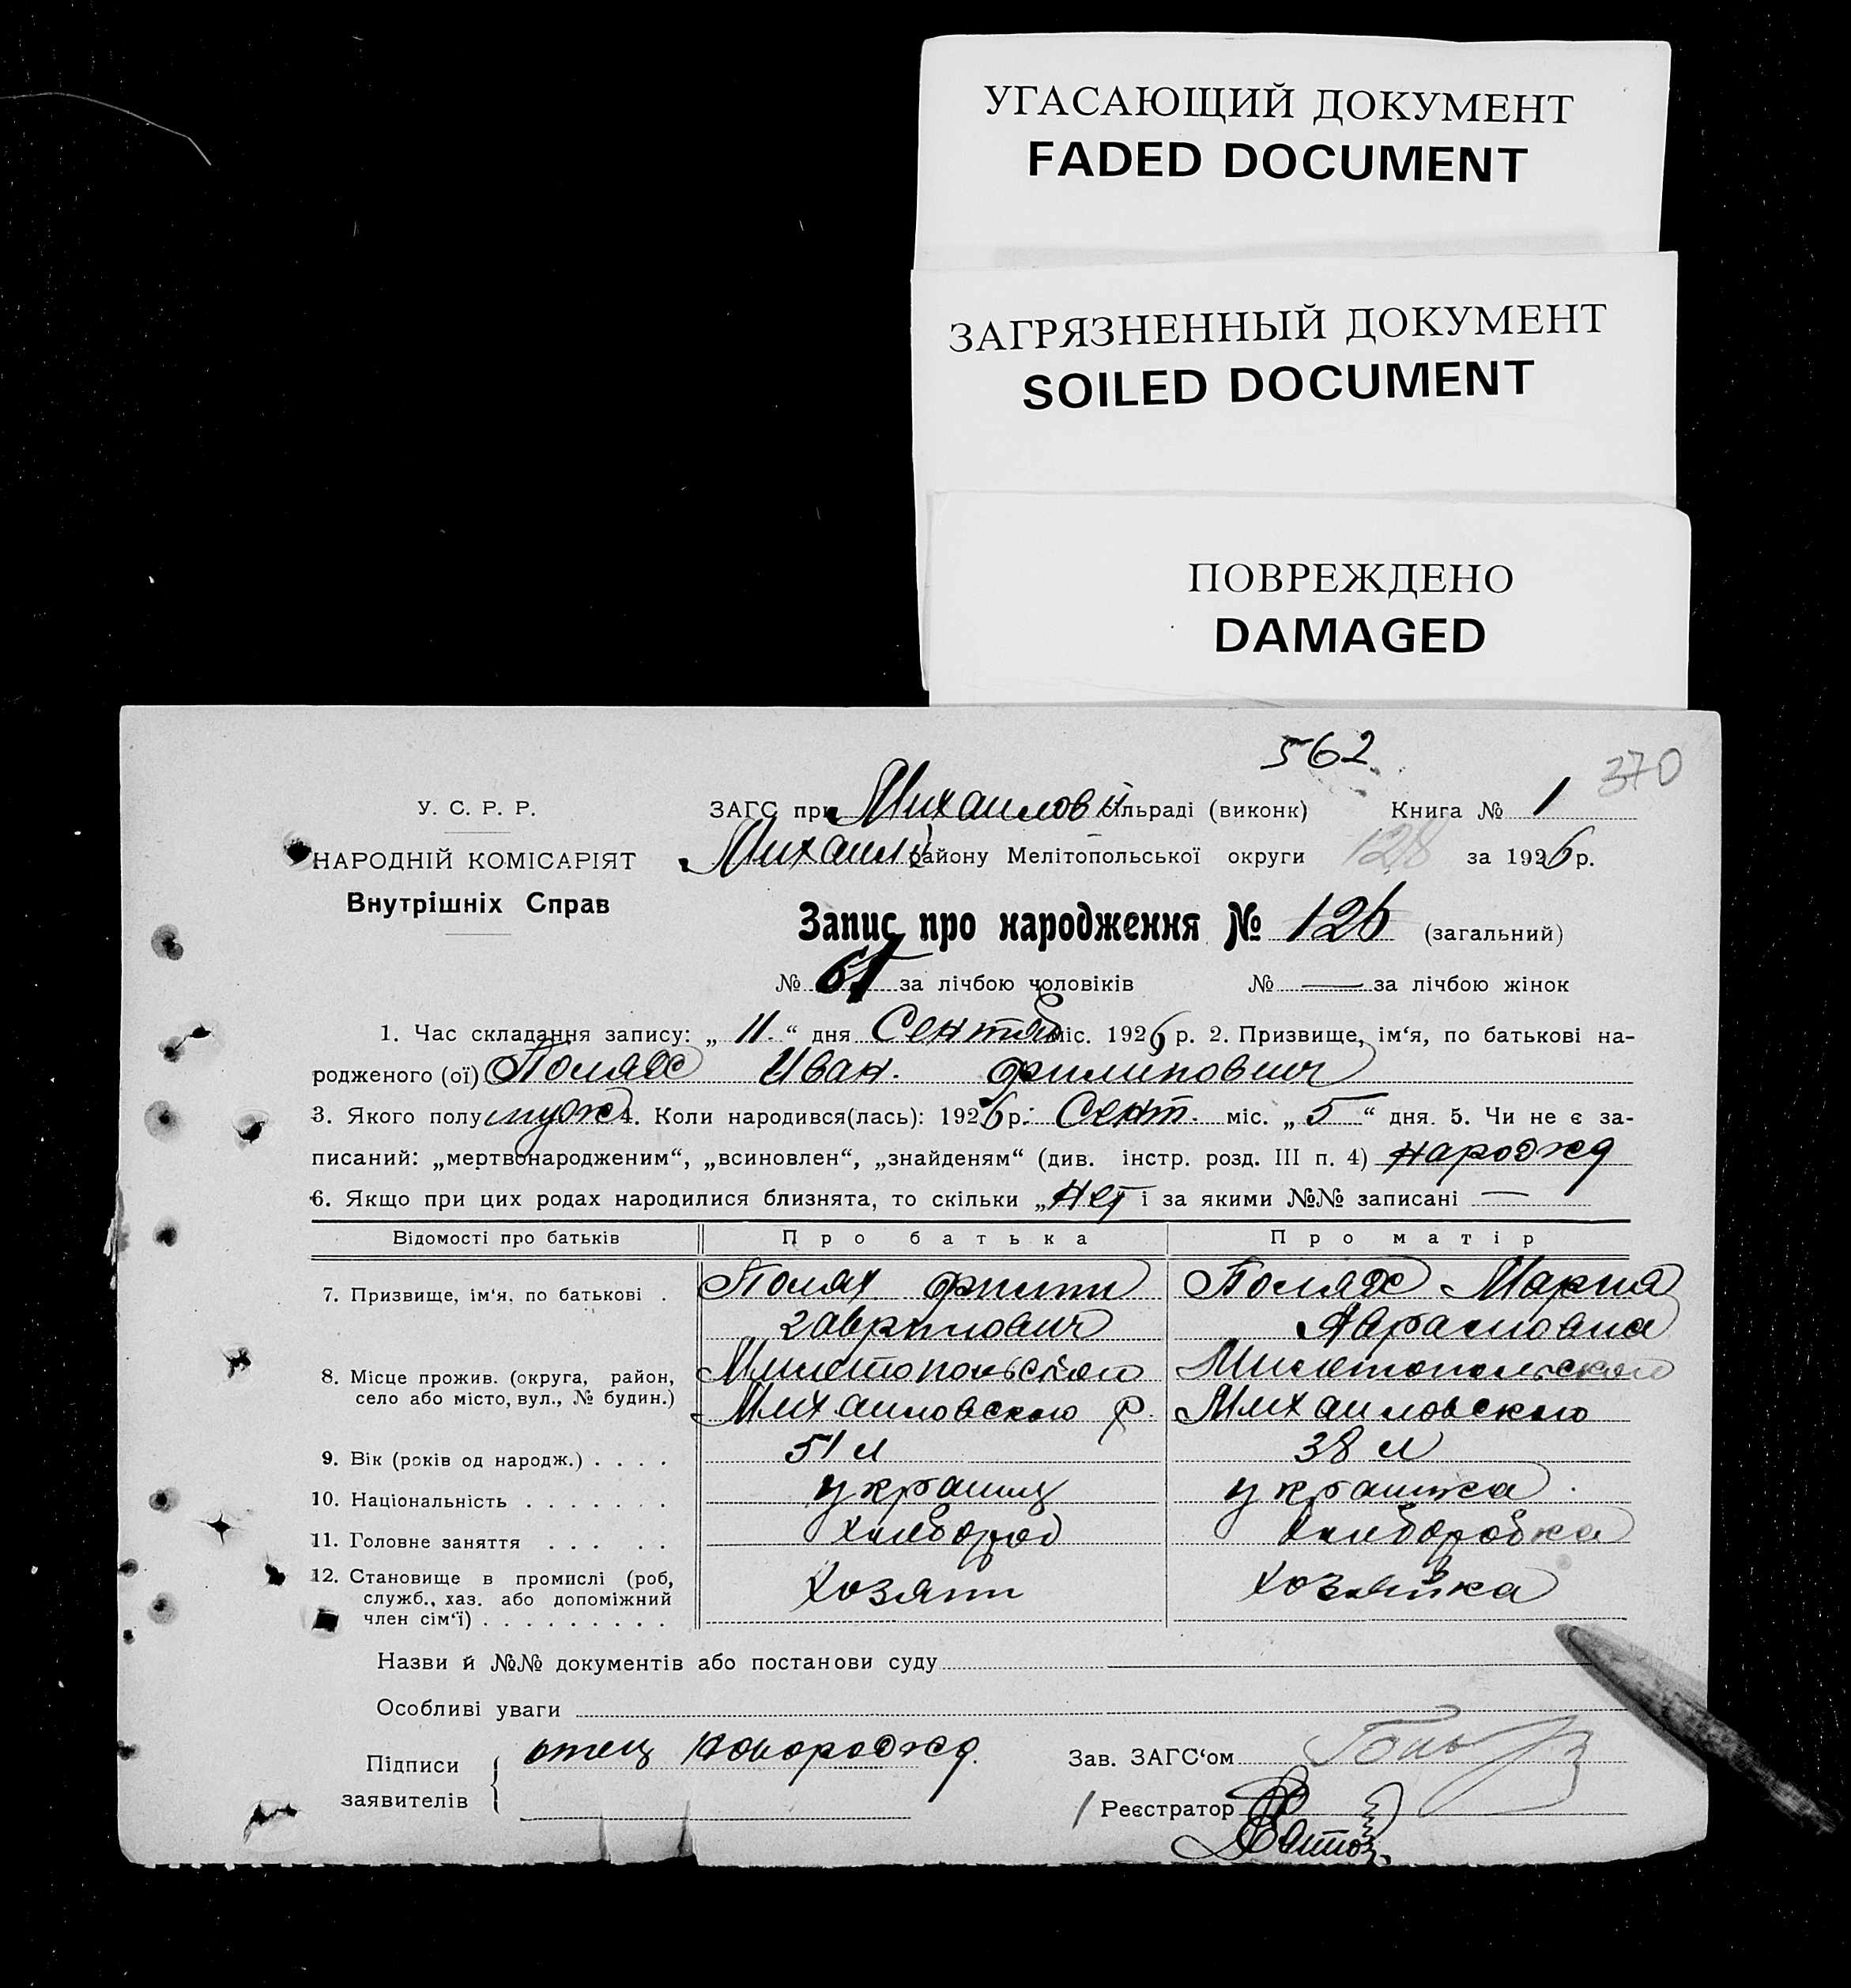 УГАСАЮЩИЙ ДОКУМЕНТ
FADED DOCUMENT
ЗАГРЯЗНЕННЫЙ ДОКУМЕНТ
SOILED DOCUMENT
ПОВРЕЖДЕНО
DAMAGED
562
370
У. С. Р. Р.
НАРОДНІЙ КОМІСАРІЯТ
Внутрішніх Справ
ЗАГС при Михайлов сільраді (виконк) Книга № 1
Михайл району Мелітопольської округи 128 за 1926 р.
Запис про народження № 126 (загальний)
№ за лічбою чоловіків № — за лічбою жінок
1. Час складання запису: „ 11. “ дня Сентяб міс. 1926 р. 2. Призвище, ім‘я, по батькові на-
родженого (ої) Полях Иван. Филипович
3. Якого полу муж 4. Коли народився(лась): 1926 р. Сент. міс. „ 5 “ дня. 5. Чи не є за-
писаний: „мертвонародженим“, „всиновлен“, „знайденям“ (див. інстр. розд. III п. 4) нарожд
6. Якщо при цих родах народилися близнята, то скільки „ Нет і за якими №№ записані —
Відомості про батьків Про батька Про матір
7. Призвище, ім‘я, по батькові . Полях Филип Полях Мария
Гаврилович Аврамовна
8. Місце прожив. (округа, район, Милетопольского Милетопольского
село або місто, вул., № будин.) Михайловского р. Михайловского
9. Вік (років од народж.) . . . . 51 л 38 л
10. Національність . . . . . . . украинц украинка
11. Головне заняття . . . . . хлебороб хлеборобка
12. Становище в промислі (роб, Хозяин Хозяйка
служб., хаз. або допоміжний
член сім‘ї) . . . . . . . . .
Назви й №№ документів або постанови суду
Особливі уваги
Підписи отец новорожд.
заявителів
Зав. ЗАГС‘ом
Реєстратор